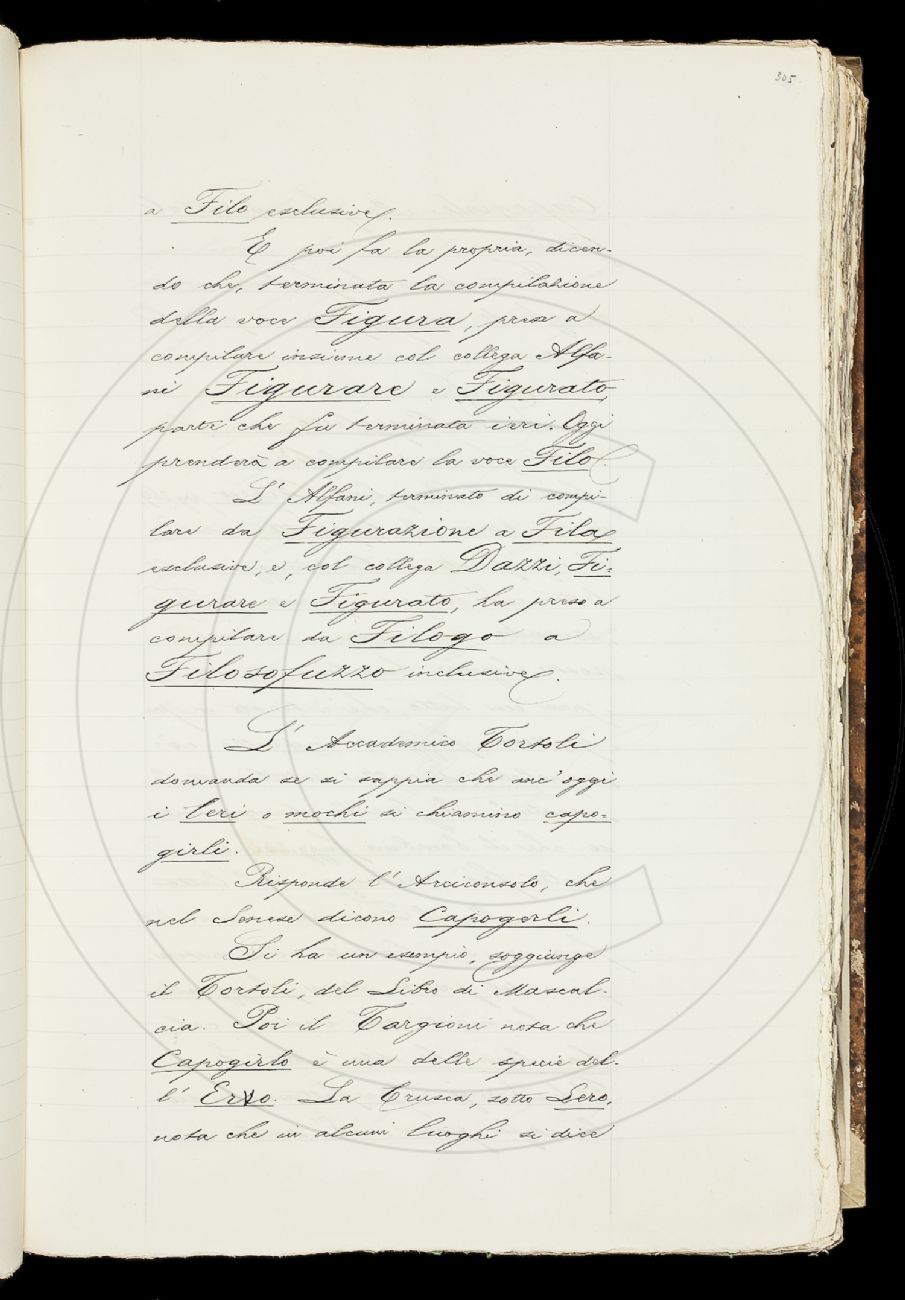 305
a Filo esclusive.
E poi fa la propria, dicen-
do che, terminata la compilazione
della voce Figura, prese a
compilare insieme col collega Alfa-
ni Figurare e Figurato,
parte che fu terminata ieri. Oggi
prenderà a compilare la voce Filo.
L' Alfani, terminato di compi-
lare da Figurazione a Fila
esclusive, e, col collega Dazzi, Fi-
gurare e Figurato, ha preso a
compilare da Filogo a
Filosofuzzo inclusive.
L' Accademico Tortoli
domanda se si sappia che anc' oggi
i leri o mochi si chiamino capo-
girli.
Risponde l' Arciconsolo, che
nel Senese dicono Capogerli.
Si ha un esempio, soggiunge
il Tortoli, del Libro di Mascal-
cia. Poi il Targioni nota che
Capogirlo è una delle specie del-
l' Ervo. La Crusca, sotto Lero,
nota che in alcuni luoghi si dice